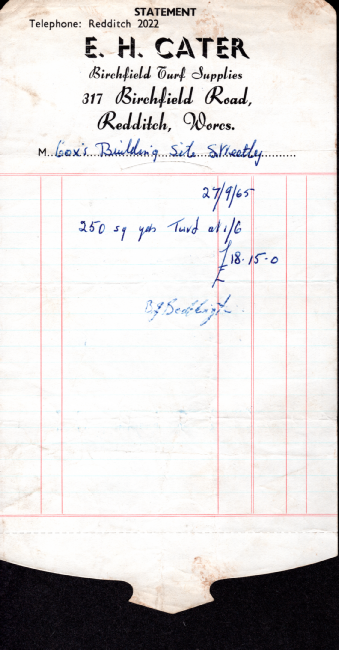 STATEMENT
Telephone: Redditch 2022
E. H. CATER
Birchfield Turf Supplies
317 Birchfield Road,
Redditch, Worcs.
M. Cox's Building Site Streetly
27/9/65
250 sq yds Turd at 1/6
£18-15-0
£